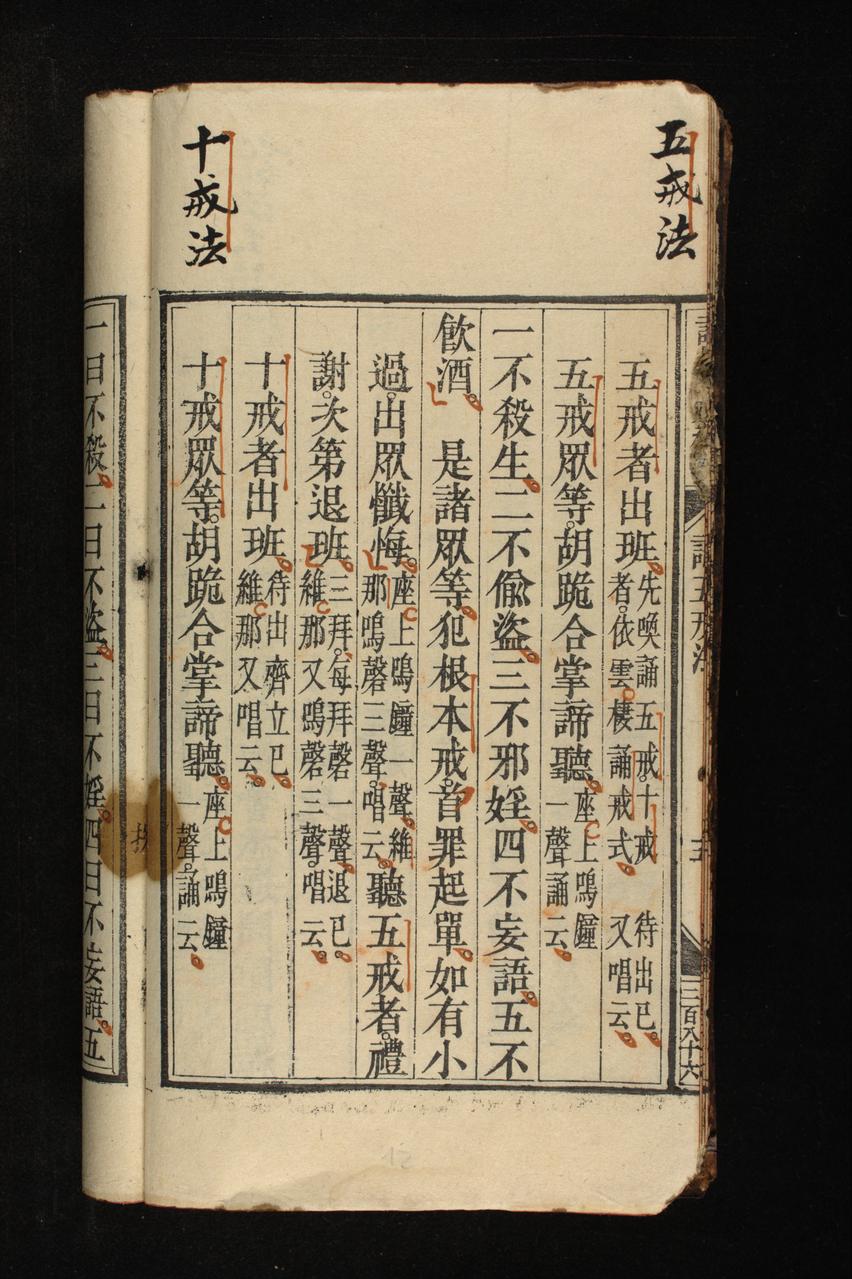 五戒法
十戒法
誦五戒法
五
三百八十六
五戒者出班。先喚誦五戒。十戒者。依雲棲誦戒式。待出已。又唱云。
五戒眾等。胡跪合掌諦聽。座上鳴鐘一聲誦云。
一不殺生。二不偷盜。三不邪婬。四不妄語。五不
飲酒。　是諸眾等。犯根本戒。首罪起單。如有小
過。出眾懺悔。座上鳴鐘一聲。維那鳴磬三聲。唱云。聽五戒者。禮
謝。次第退班。三拜。每拜磬一聲。退已。維那又鳴磬三聲。唱云。
十戒者出班。待出齊立已。維那又唱云。
十戒眾等。胡跪合掌諦聽。座上鳴鐘一聲。誦云。
一曰不殺。二曰不盜。三曰不婬。四曰不妄語。五